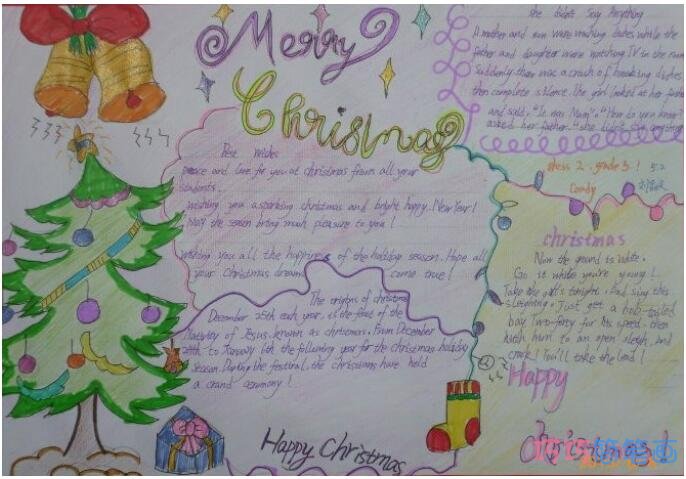 Merry
Christmas
she didn't Say Anything
A mother and son were washing dishes while the
father and daughter were watching TV in the room
Suddenly there was a crash of breaking dishes
then complete silence. The girl looked at her father
and said, "It was Mum". "How do you know?"
asked her father. "she didn't say anything
class 2. grade 5! 52
Candy
Best wishes
peace and love for you at christmas from all your
students.
Wishing you a sparkling christmas and bright happy. New Year!
May the season bring much pleasure to you!
wishing you all the happiness of the holiday season. Hope all
your Christmas dream come true!
The origins of christmas
December 25th each year, is the feast of the
Nativity of Jesus. known as christmas. From December
24th to January 6th the following year for the christmas holiday
season. During the festival, the christians have held
a grand ceremony!
christmas
Now the ground is white.
Go it while you're young!
Take the girls tonight. And sing this
sleighing. Just get a bob-tailed
bay two-forty for his speed. then
hitch him to an open sleigh. and
crack! You'll take the lead!
Happy
christmas!
Happy Christmas